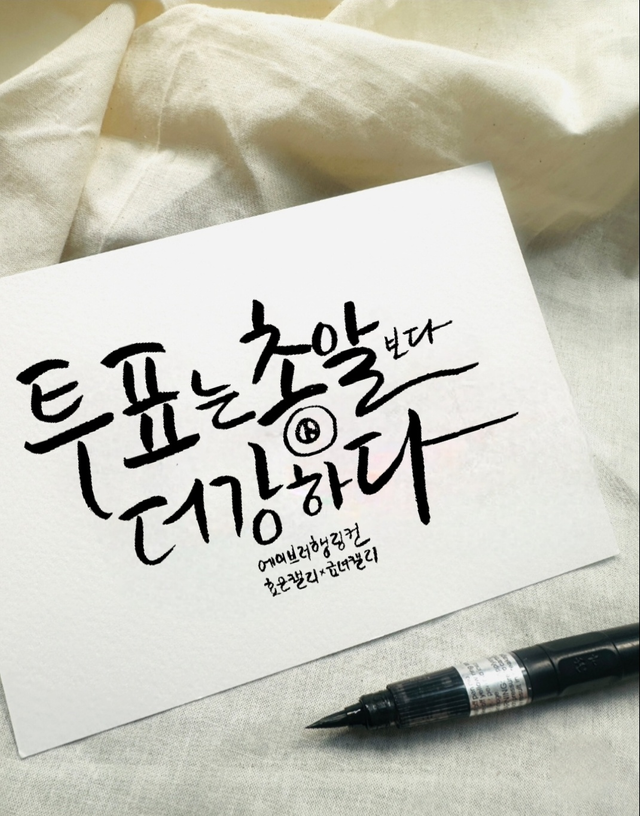 투표는 총알보다
더 강하다
에이브러햄 링컨
효은캘리×효녀캘리